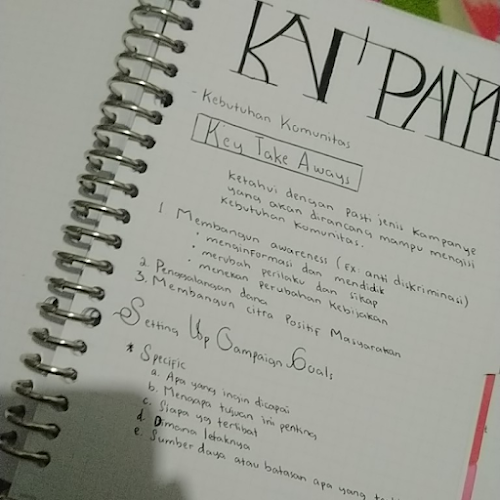 - Kebutuhan Komunitas
Key Take Aways
Ketahui dengan pasti jenis kampanye
yang akan dirancang mampu mengisi
kebutuhan komunitas.
1 Membangun awareness (Ex: anti diskriminasi)
• menginformasi dan mendidik
• merubah perilaku dan sikap
• menekan perubahan kebijakan
2. Penggalangan dana
3. Membangun citra Positif Masyarakan
Setting Up Campaign Goals
* Specific
a. Apa yang ingin dicapai
b. Mengapa tujuan ini penting
c. Siapa yg terlibat
d. Dimana letaknya
e. Sumber daya atau batasan apa yang